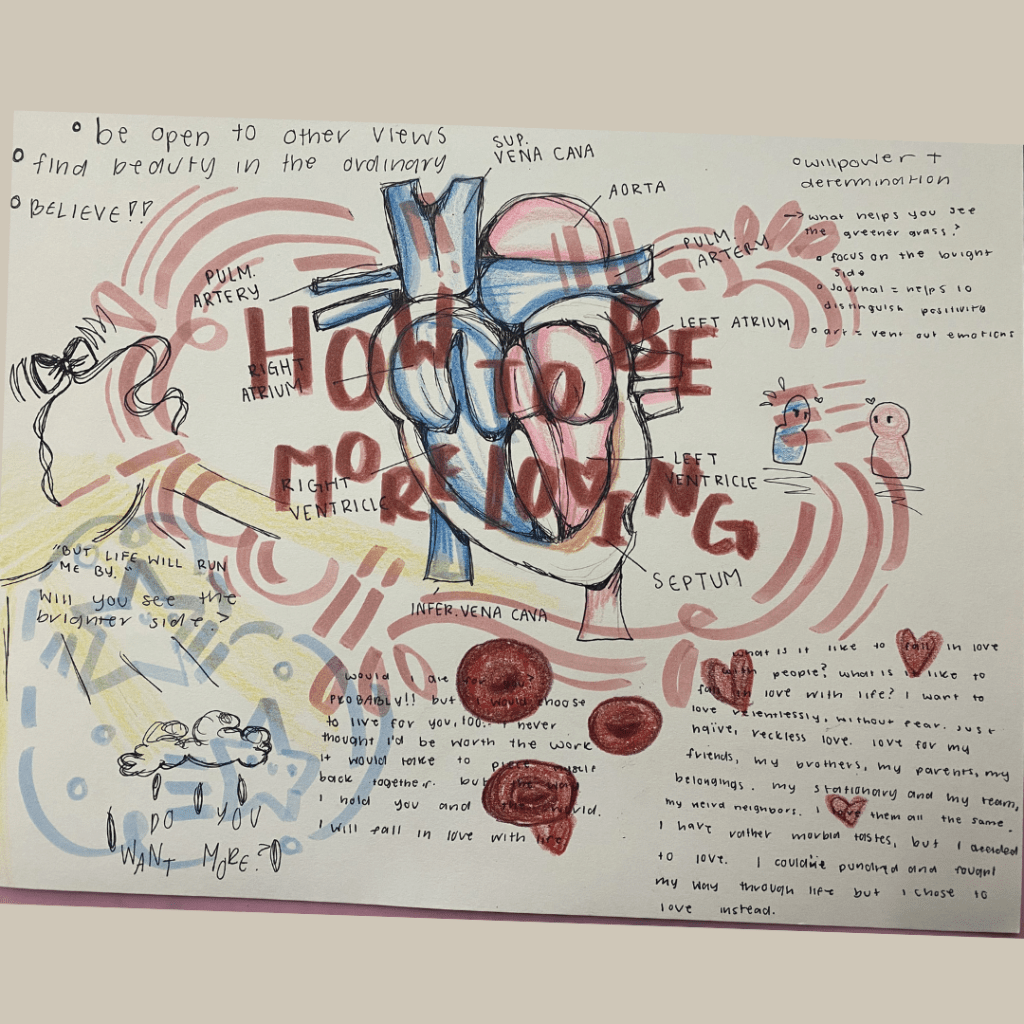 o be open to other views
o find beauty in the ordinary
o BELIEVE!!
SUP.
VENA CAVA
AORTA
PULM.
ARTERY
PULM
ARTERY
LEFT ATRIUM
RIGHT
ATRIUM
RIGHT
VENTRICLE
LEFT
VENTRICLE
SEPTUM
INFER. VENA CAVA
HOW TO BE
MORE LOVING
o willpower +
determination
→ what helps you see
the greener grass?
o focus on the bright
side
o Journal = helps to
distinguish positivity
o art = vent out emotions
"BUT LIFE WILL RUN
ME BY."
Will you see the
brighter side?
DO YOU
WANT MORE?
would I die you?
PROBABLY!! but I would choose
to live for you, too. I never
thought I'd be worth the work
it would take to
back together. but
I hold you and
I will fall in love with life
what is it like to fall in love
with people? what is like to
fall in love with life? I want to
love relentlessly, without fear. Just
naïve, reckless love. love for my
friends, my brothers, my parents, my
belongings. my stationary and my team,
my neighbors. I them all the same.
I have rather morbid tastes, but I decided
to love. I and
my way through life but i chose to
love instead.